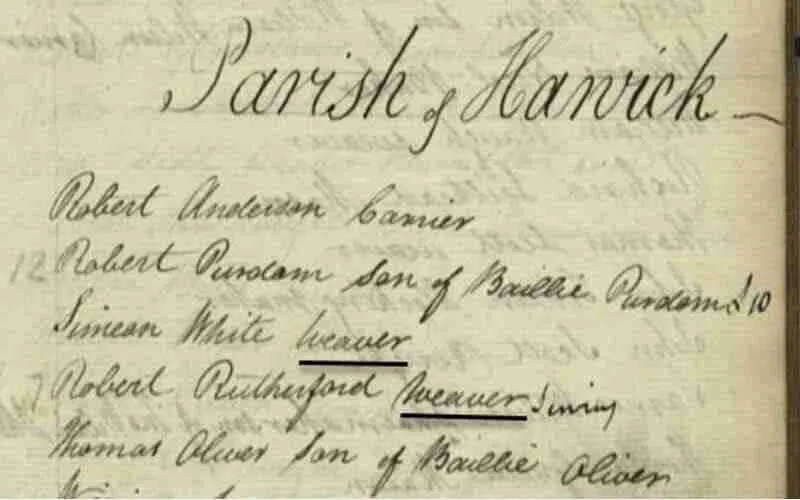 Parish of Hawick
Robert Anderson Carrier
12 Robert Purdom Son of Baillie Purdom
Simeon White Weaver
7 Robert Rutherford Weaver
Thomas Oliver Son of Baillie Oliver